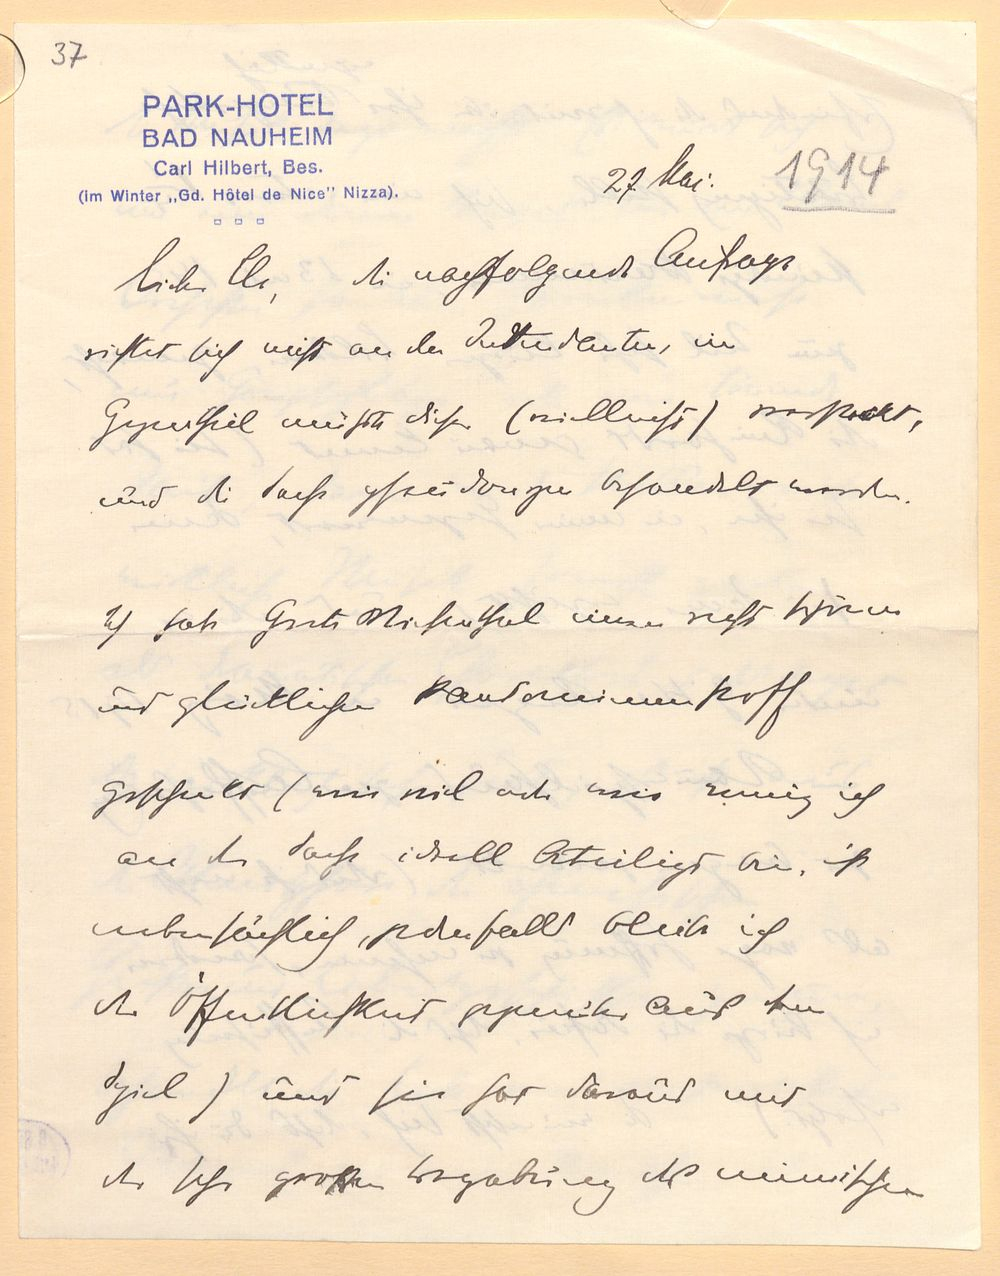 37
PARK-HOTEL
BAD NAUHEIM
Carl Hilbert, Bes.
(im Winter „Gd. Hôtel de Nice" Nizza).
27 Mai. 1914
Lieber, die nachfolgende Anfrage
richtet sich nicht an den Intendanten, im
Gegentheil müsste dieser (vielleicht),
und die Sache behandelt werden.
Ich habe Grete Wiesenthal einen recht schönen
und glücklichen Pandomimenstoff
geschenkt (wie viel oder wie wenig ich
an der Sache ideell beteiligt bin, ist
nebensächlich, jedenfalls bleibe ich
der Öffentlichkeit gegenüber aus dem
Spiel) und sie hat daraus mit
der sehr grossen Begabung des mimischen